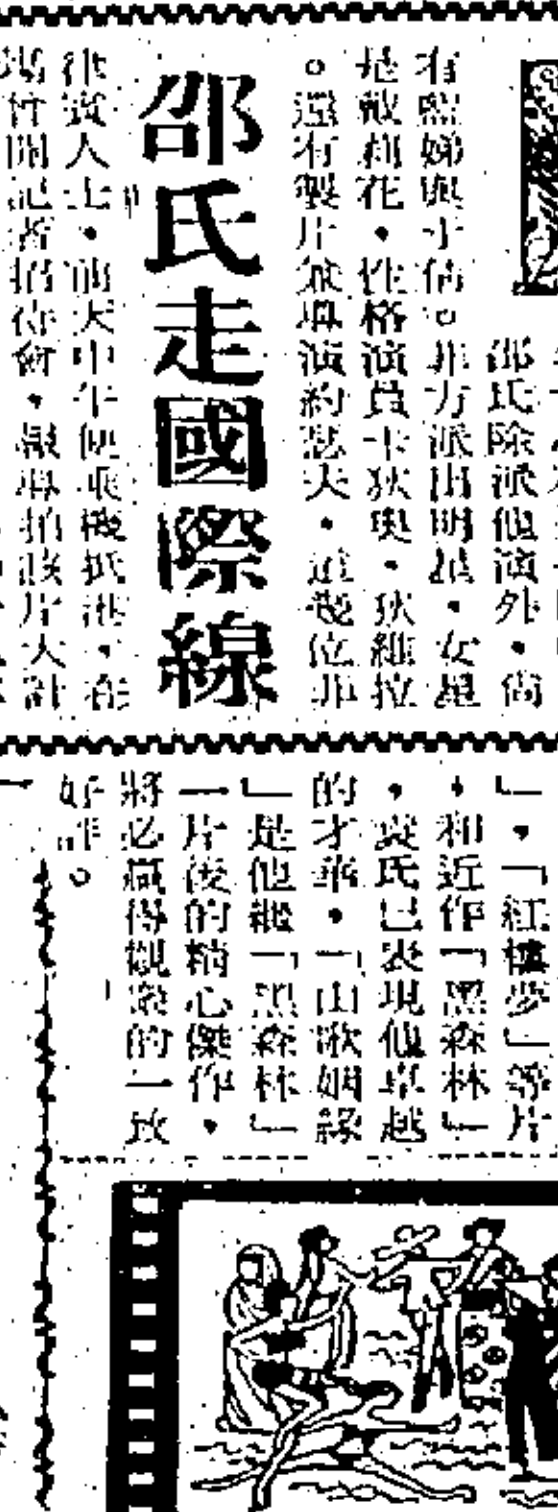 邵氏除派他演外,尚
有熙娣與于倩。菲方派出明星,女星
是戴利花,性格演員卡狄奧,狄維拉
。還有製片兼導演約瑟夫,這幾位菲
邵氏走國際線
律賓人士,前天中午便乘機抵港,在
開記者招待會,報導拍該片大計
」,「紅樓夢」等片
,和近作「黑森林」
,袁氏已表現他卓越
的才華,「山歌姻緣
」是他繼「黑森林」
一片後的精心傑作,
將必贏得觀眾的一致
好評。